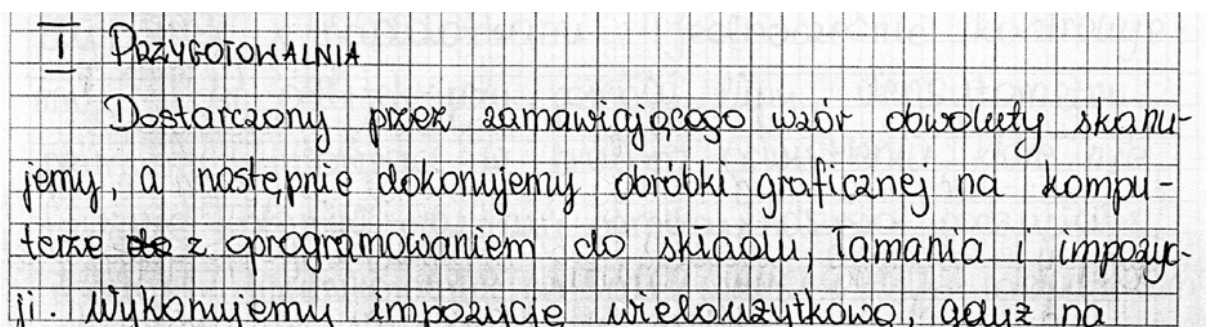 I PRZYGOTOWALNIA
Dostarczony przez zamawiającego wzór obwoluty skanu-
jemy, a następnie dokonujemy obróbki graficznej na kompu-
terze do z oprogramowaniem do składu, łamania i impozyc-
ji. Wykonujemy impozycję wieloużytkową, gdyż na